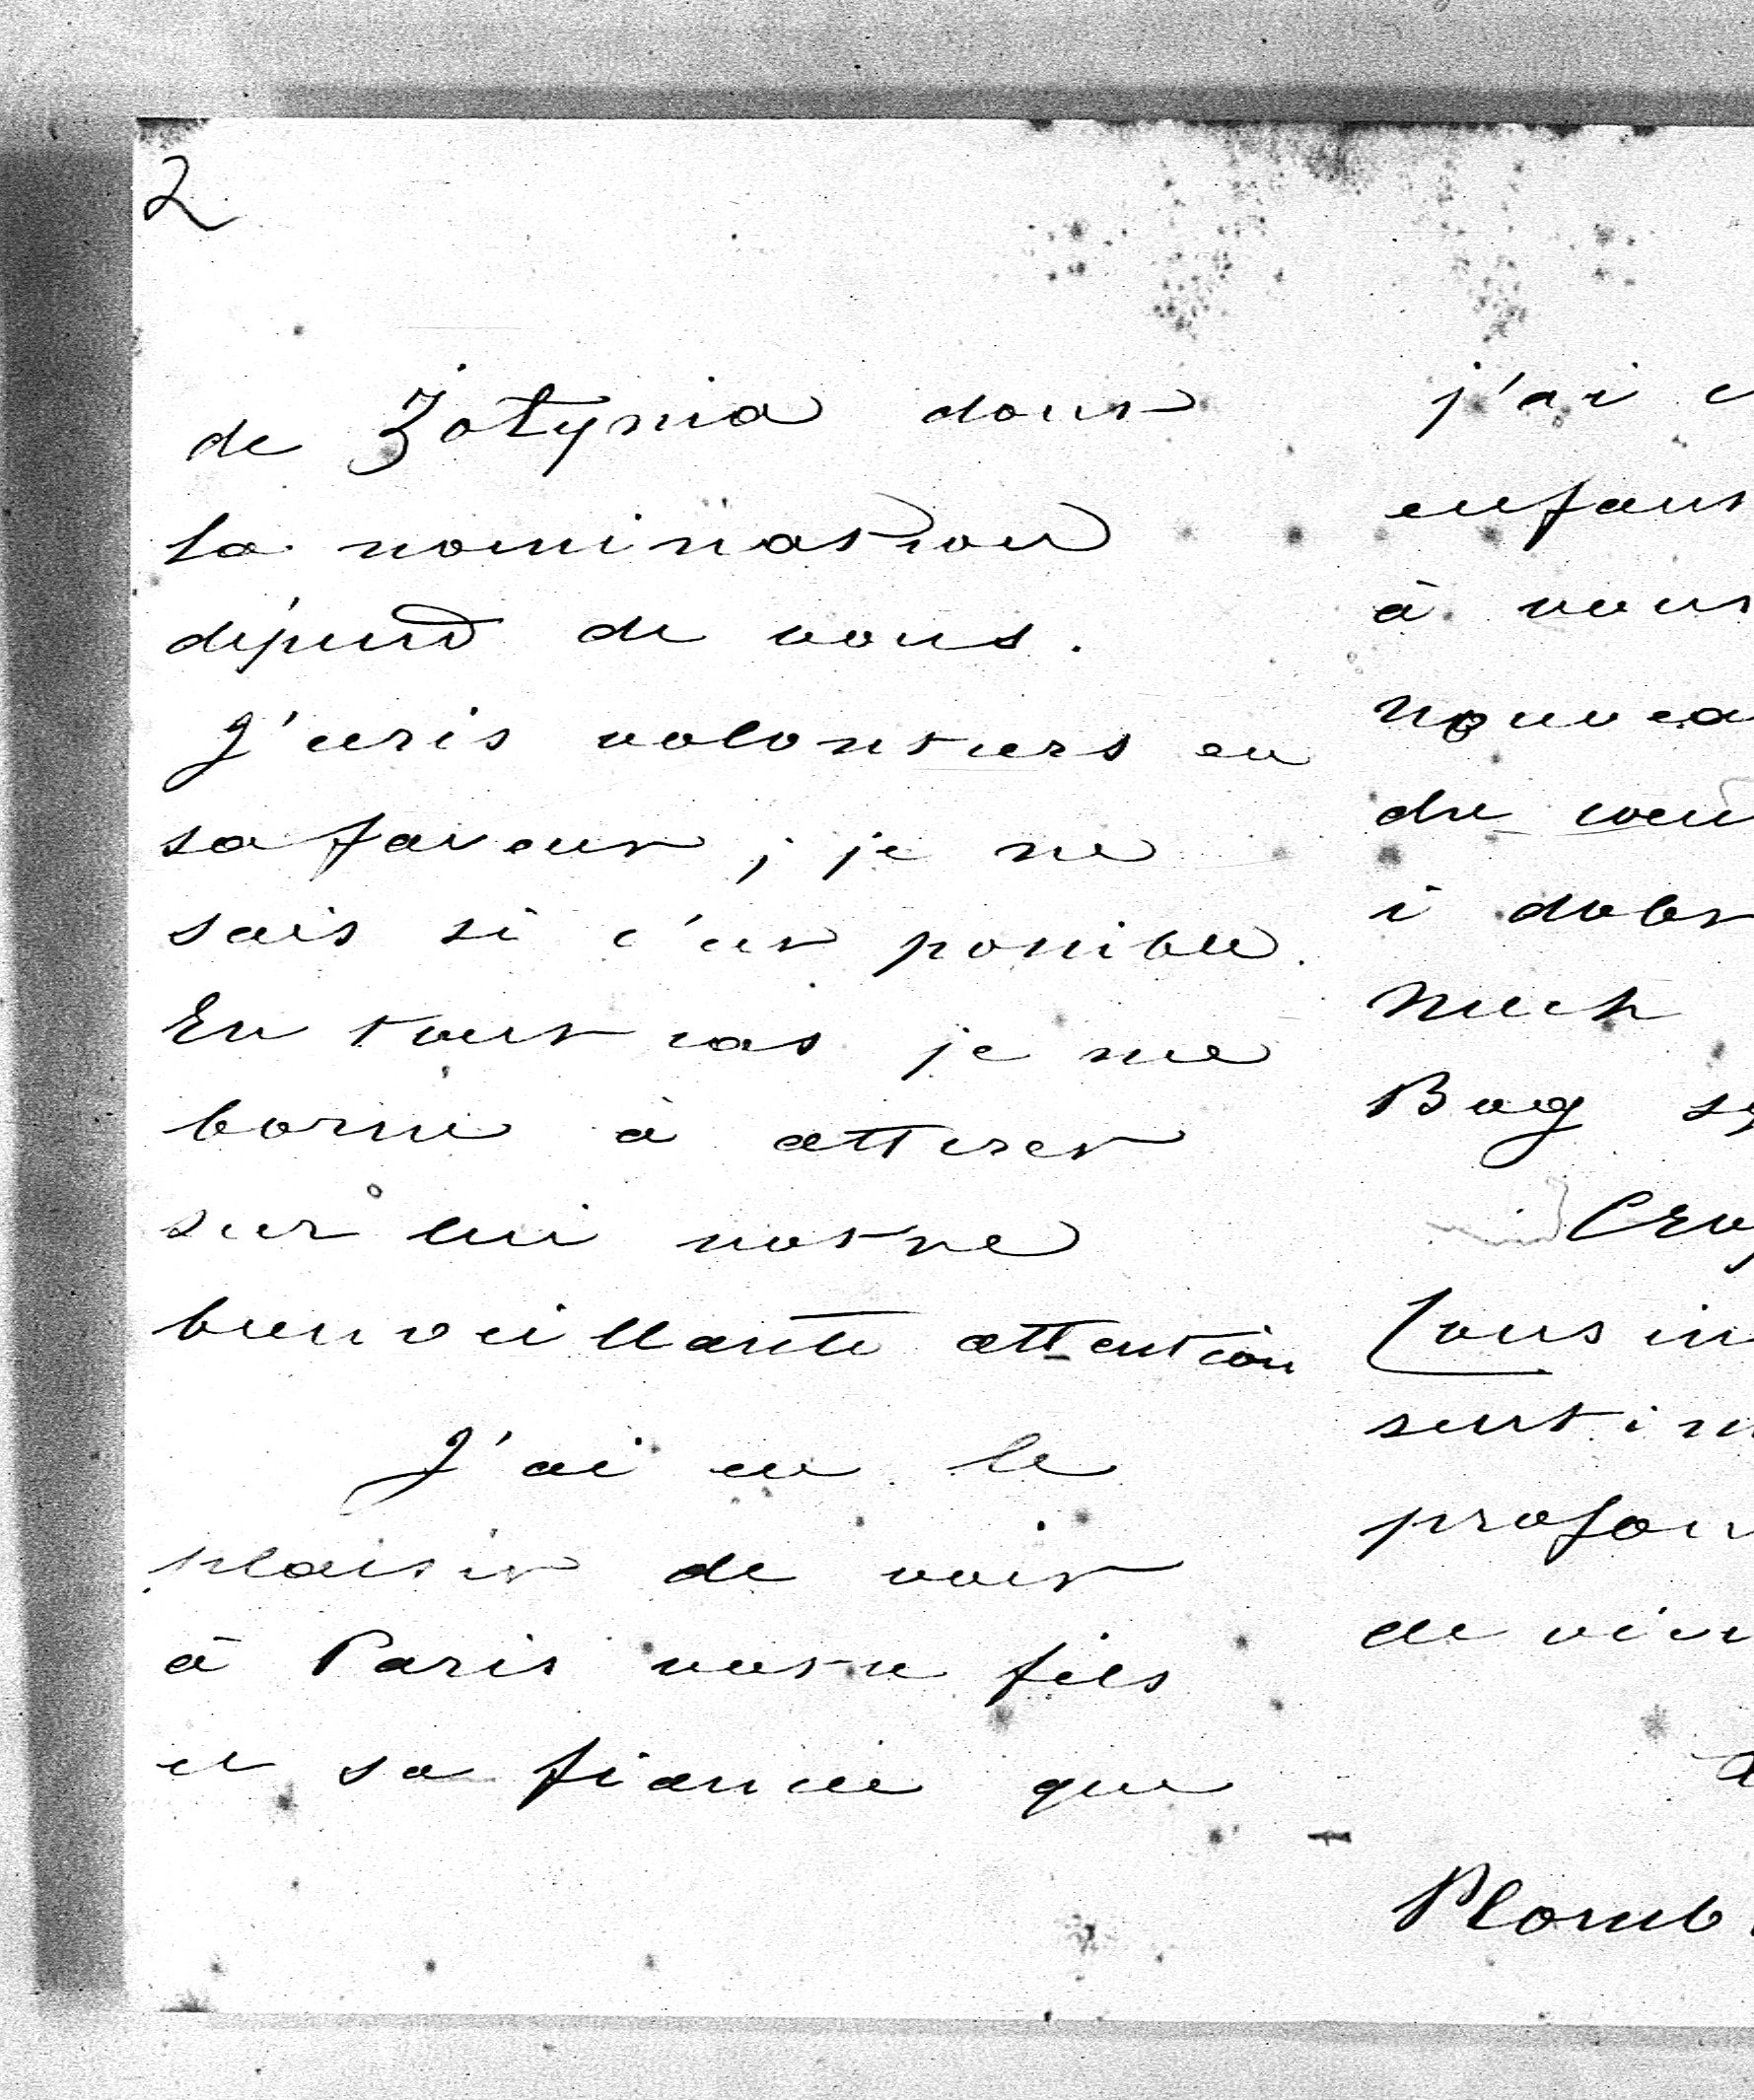 2
de Żotynia dont
la nomination
dépend de vous.
J'écris volontiers en
sa faveur ; je ne
sais si c'est possible.
En tout cas je me
borne à attirer
sur lui votre
bienveillante attention
J'ai eu le
plaisir de voir
à Paris votre fils
et sa fiancée que
j'ai
enfant
à vous
nouvea
du
i dobr
Niech
Bog
Cousin
sentim
profon
de
Plomb